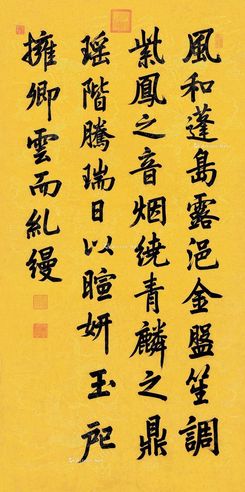 風和蓬島露浥金盤笙調
紫鳳之音烟繞青麟之鼎
瑶階騰瑞日以暄妍玉
擁卿雲而糺縵